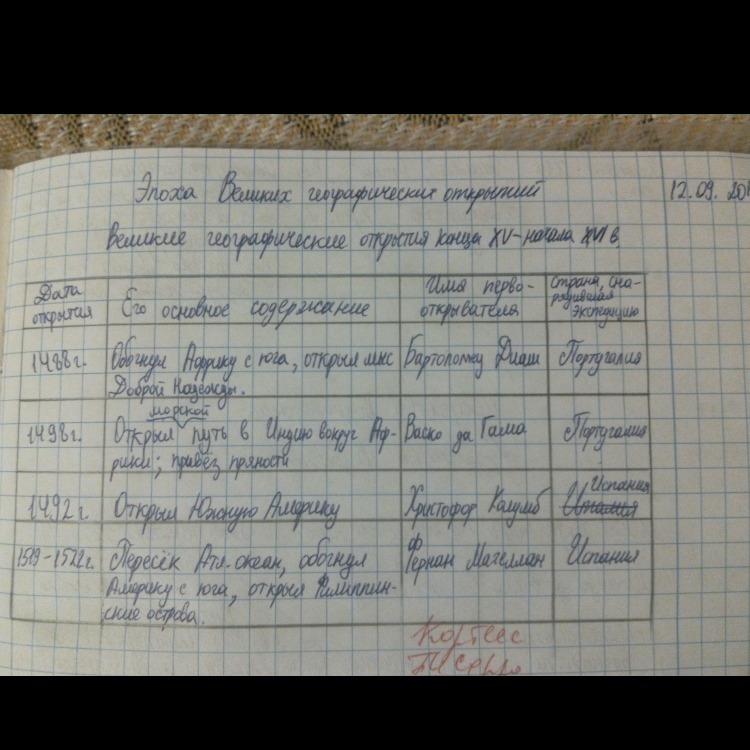 Эпоха Великих географических открытий
12.09.20
Великие географические открытия конца XV-начала XVI в.
Дата открытия
Его основное содержание
Имя перво-
открывателя
Страна, сна-
рядившая
экспедицию
1488г.
Обогнул Африку с юга, открыл мыс
Доброй Надежды.
Бартоломеу Диаш
Португалия
морской
1498г.
Открыл путь в Индию вокруг Аф-
рики; привёз пряности
Васко да Гама
Португалия
1492г.
Открыл Южную Америку
Христофор Колумб
Испания
1519-1522г.
Пересёк Атл. океан, обогнул
Америку с юга, открыл Филиппин-
ские острова.
Фернан Магеллан
Испания
Кортес